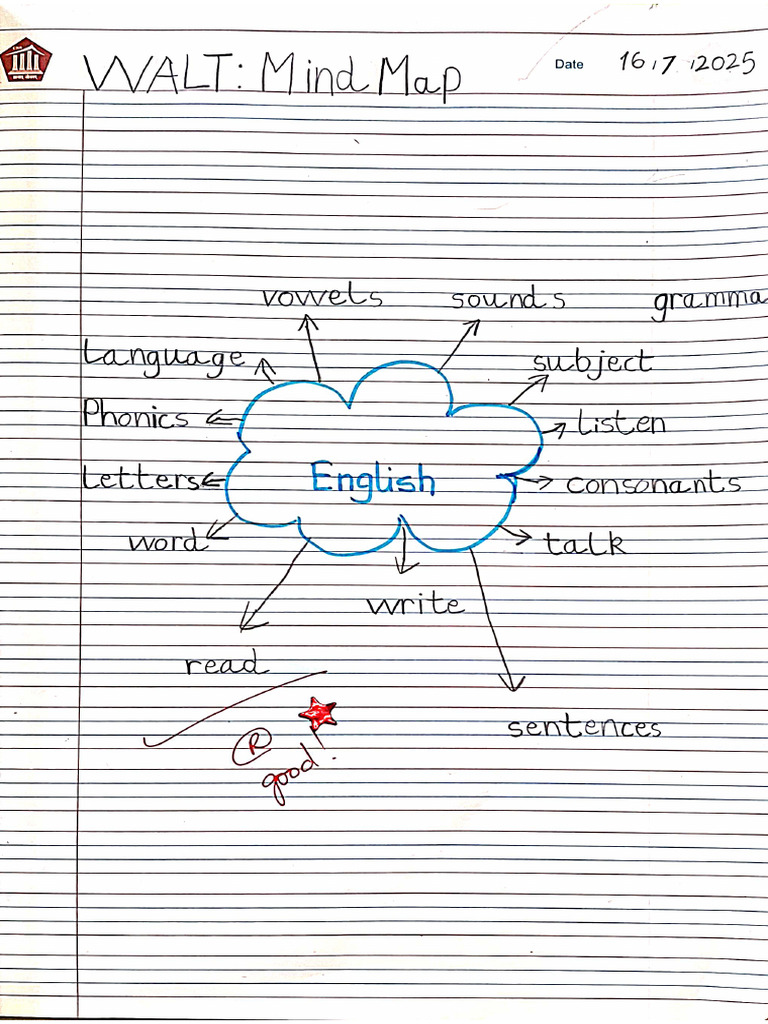 WALT: Mind Map
Date 16/7/2025
vowels sounds gramma
Language subject
Phonics listen
Letters English consonants
word talk
write
read
sentences
R
good!